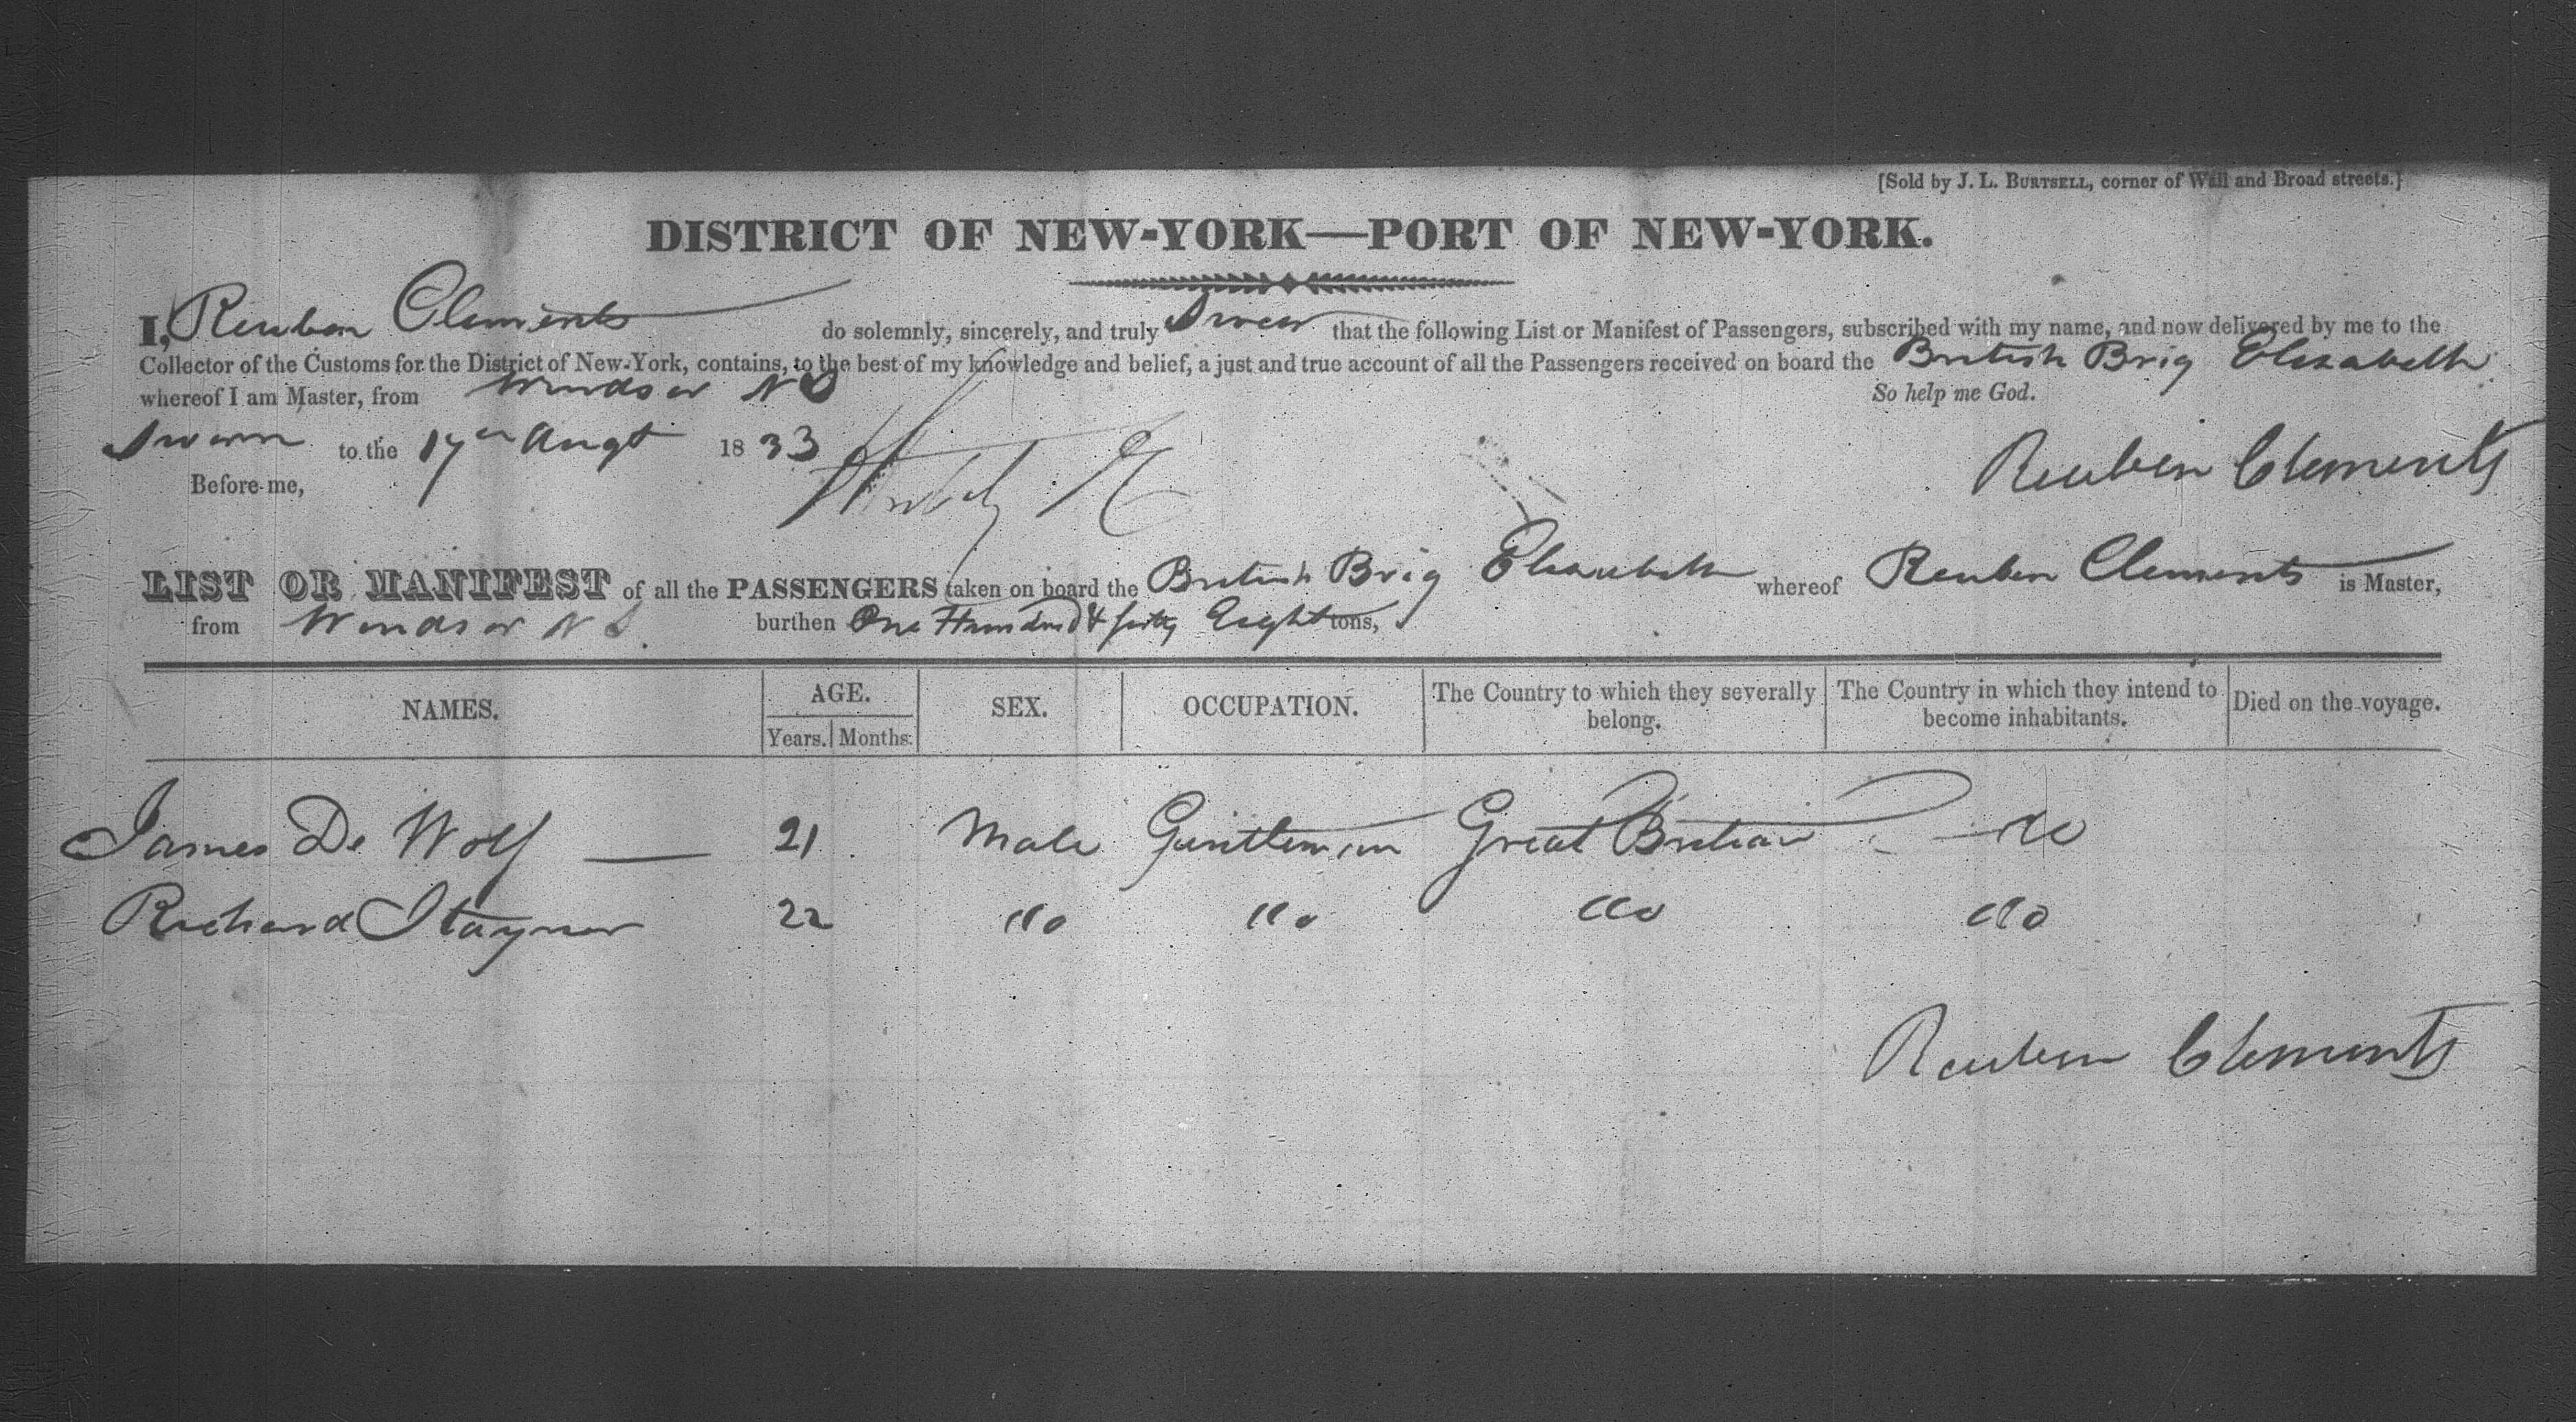 [Sold by J. L. BURTSELL, corner of Wall and Broad streets.]
DISTRICT OF NEW-YORK—PORT OF NEW-YORK.
I, Reuben Clements do solemnly, sincerely, and truly Swear that the following List or Manifest of Passengers, subscribed with my name, and now delivered by me to the
Collector of the Customs for the District of New-York, contains, to the best of my knowledge and belief, a just and true account of all the Passengers received on board the British Brig Elizabeth
whereof I am Master, from Windsor N S So help me God.
Sworn to the 17 Augt 1833
Reuben Clements
Before me,
LIST OR MANIFEST of all the PASSENGERS taken on board the British Brig Elizabeth whereof Reuben Clements is Master,
from Windsor N S. burthen One Hundred & Eight tons,
NAMES. AGE. SEX. OCCUPATION. The Country to which they severally belong. The Country in which they intend to become inhabitants. Died on the voyage.
Years. Months.
James De Wolf — 21 Male Gentleman Great Britain do
Richard Stayner 22 do do do do
Reuben Clements